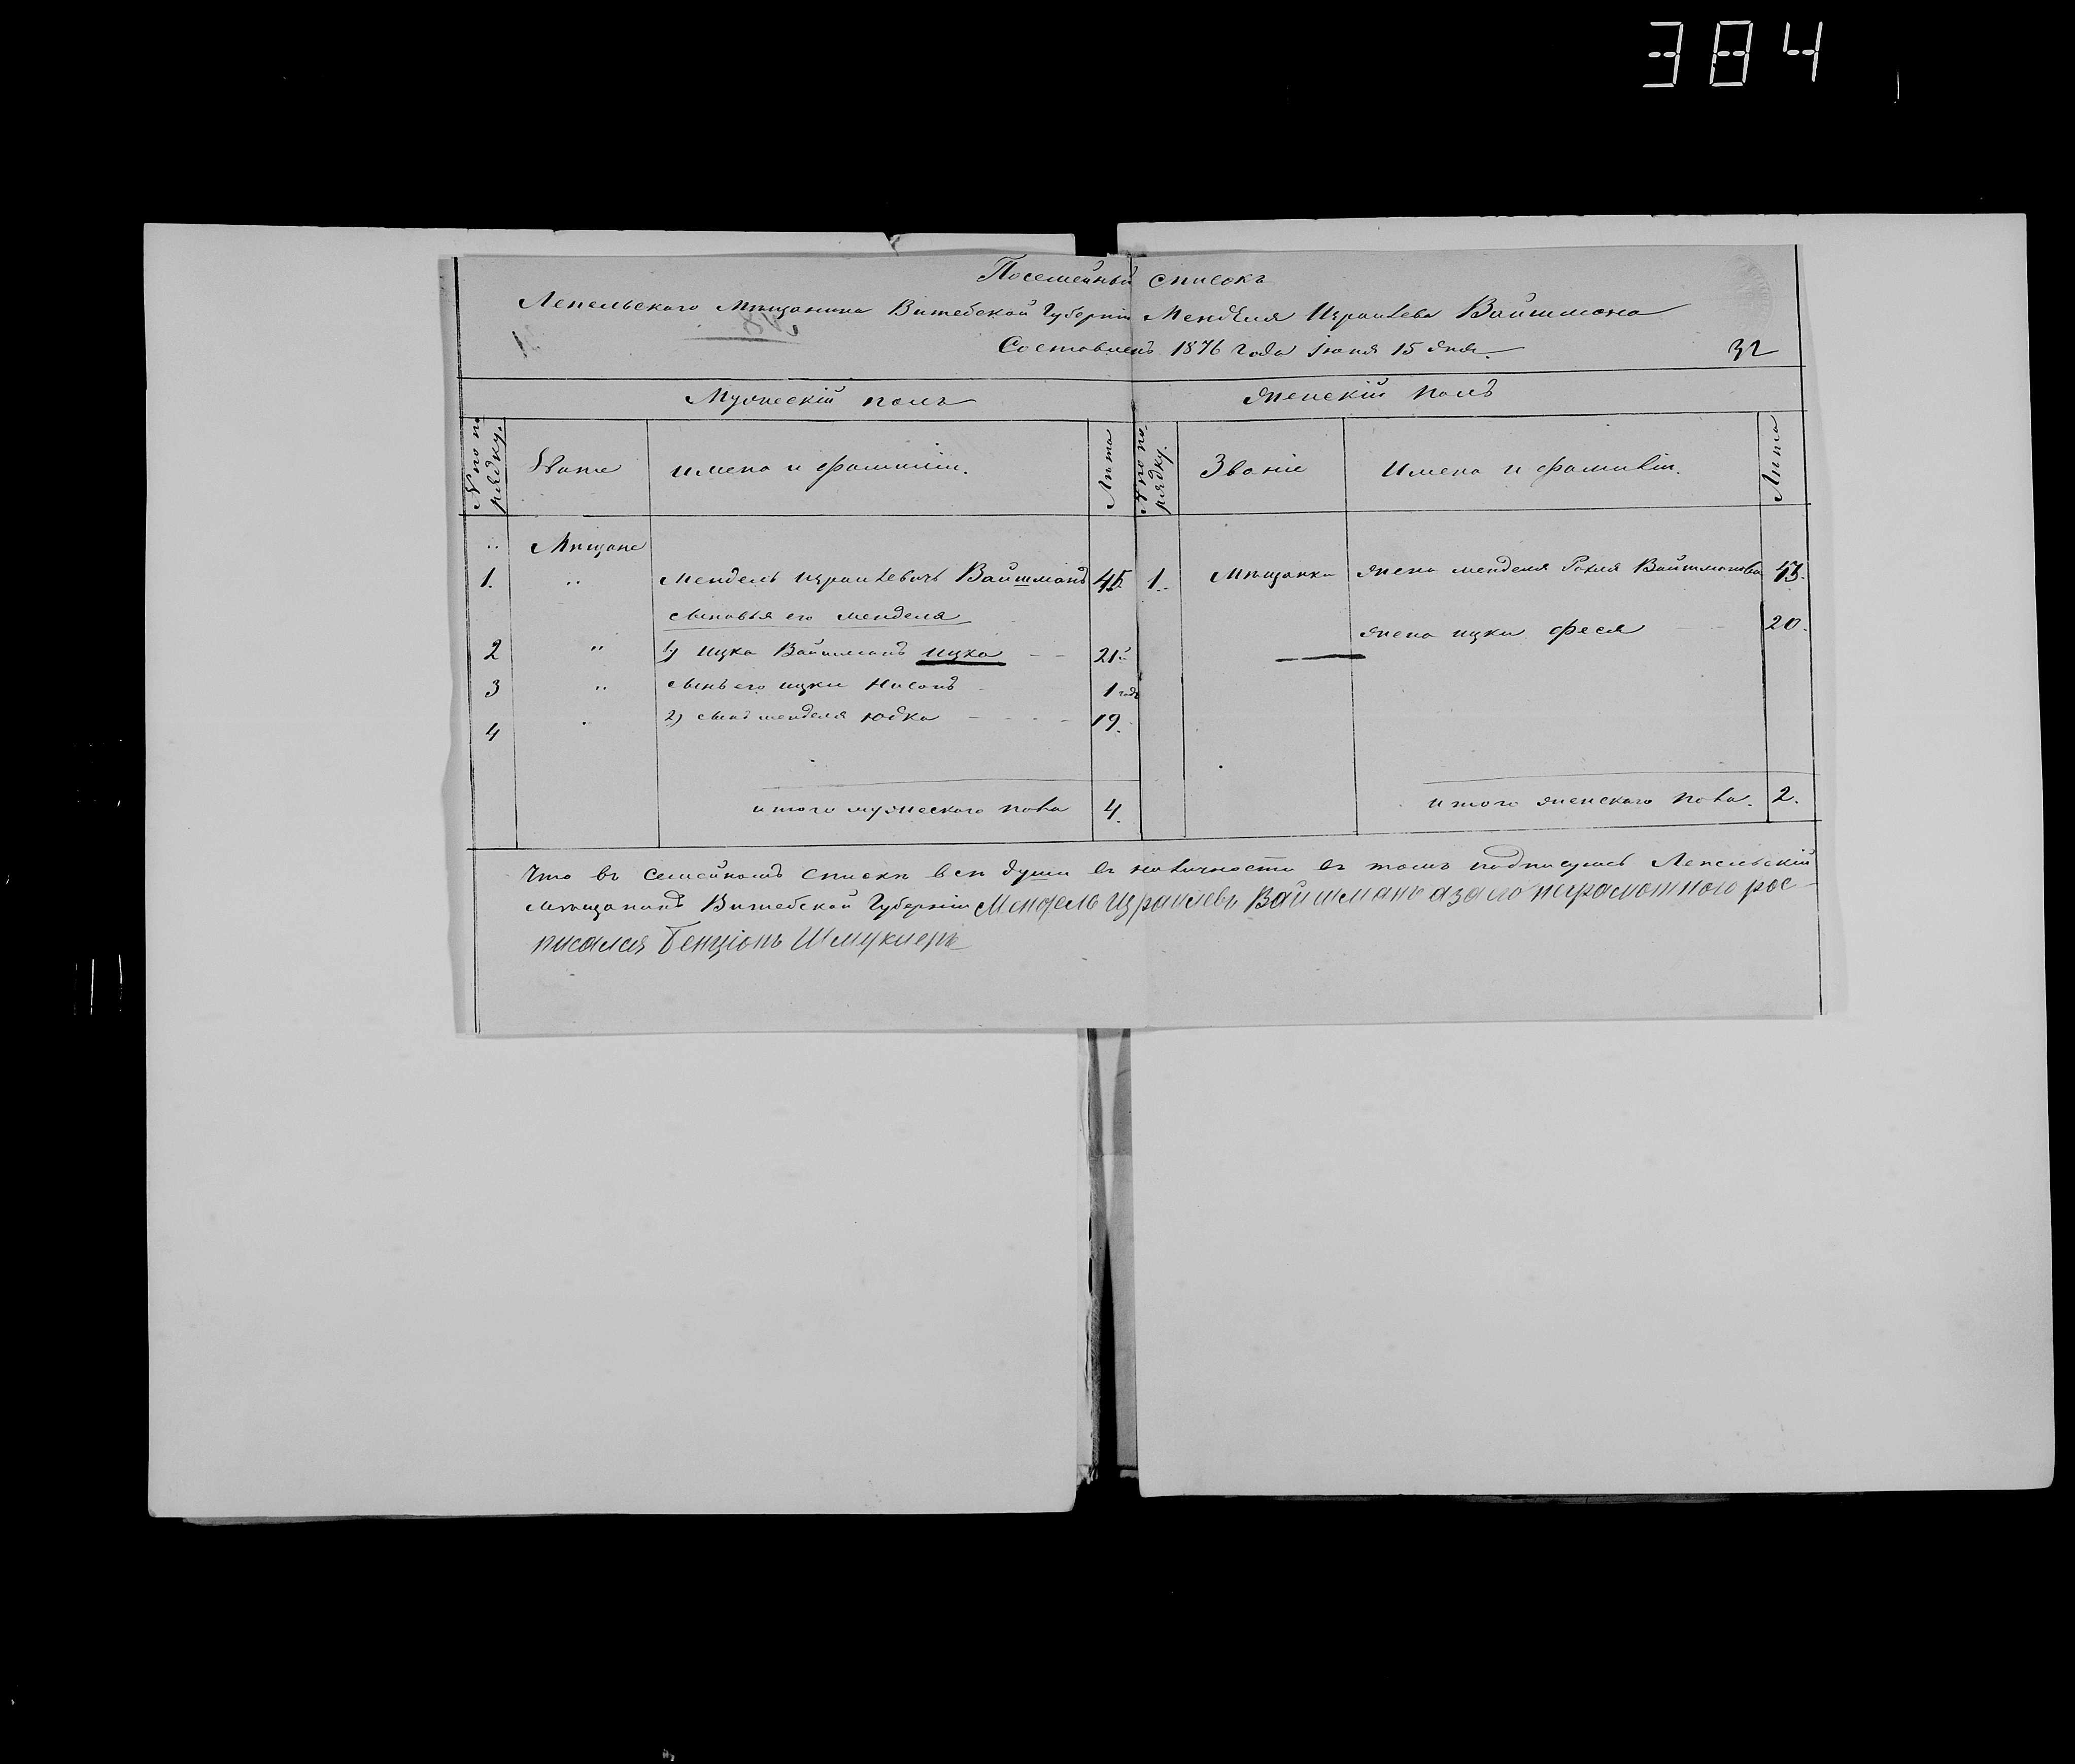 384
Посемейный списокъ
Лепельскаго Мѣщанина Витебской Губерніи Менделя Израилева Вайшмана
Составленъ 1876 года Іюня 15 дня.
32
Мужескій полъ
Женскій полъ
№ по по-
рядку.
Званіе
Имена и фамиліи.
Лѣта
№ по по-
рядку.
Званіе
Имена и фамиліи.
Лѣта
„ Мѣщане
1. „ Мендель Израилевичъ Вайшманъ 45. 1. Мѣщанка жена Менделя Рахля Вайшманова 43.
сыновья его Менделя
жена Ицки Феся 20.
2 „ 1) Ицка Вайшманъ Ицка 21.
3 „ сынъ его Ицки Нисонъ 1 годъ
4 „ 2) сынъ Менделя Юдка 19.
итого мужескаго пола 4. итого женскаго пола. 2.
Что въ семейномъ спискѣ всѣ души въ наличности въ томъ подписуюсь Лепельскій
мѣщанинъ Витебской Губерніи Мендель Израилевъ Вайшманъ аза его неграмотного рос-
писался Бенціонъ Шмуклеръ